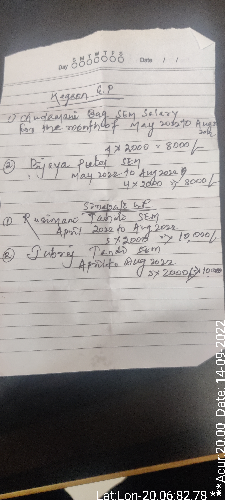 Day S M T W T F S Date / /
Kegaon G.P
① Chudamani Bag SEM Salary
for the month of May 2022 to Aug
2022
4 x 2000 = 8000/-
② Bijaya SEM
May 2022 to Aug 2022
4 x 2000 = 8000/-
Sinapali G.P
① Rukmani Tandi SEM
April 2022 to Aug 2022
5 x 2000 = 10,000/-
② Jubraj Tandi SEM
April to Aug 2022
5 x 2000/- = 10,000
Lat Lon-20.06:82.78 *
**Acur:20.00 Date: 14-09-2022